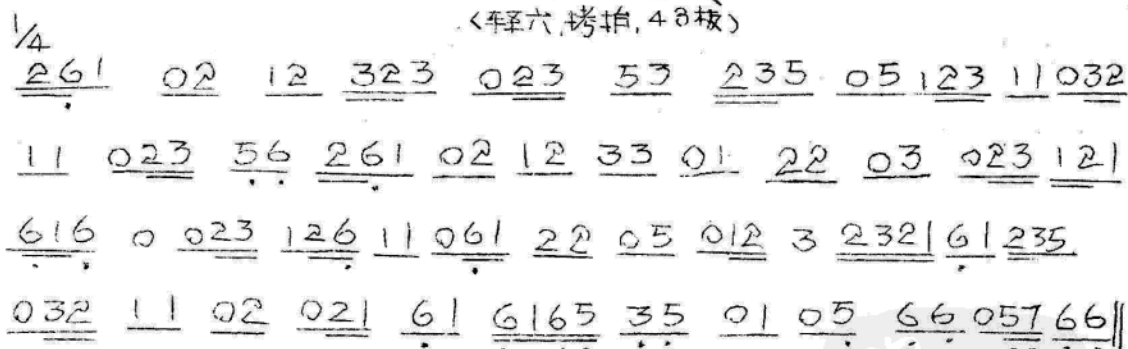 1/4
〈轻六,拷拍,48板〉
261 02 12 323 023 53 235 05 123 11 032
11 023 56 261 02 12 33 01 22 03 023 121
616 0 023 126 11 061 22 05 012 3 2321 61 235
032 11 02 021 61 6165 35 01 05 66 057 66‖